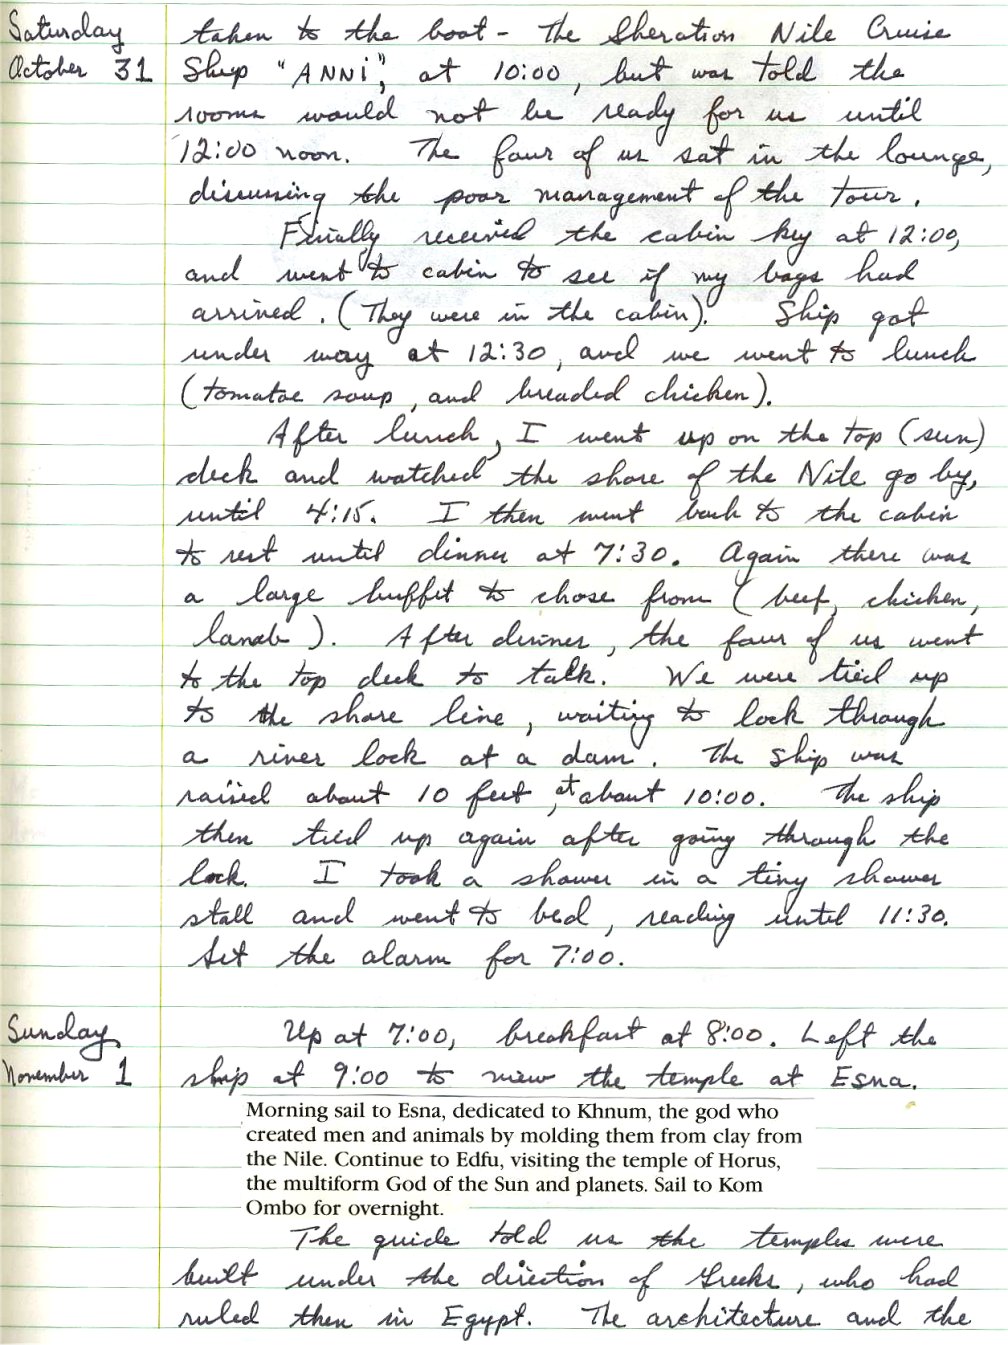 Saturday
October 31
taken to the boat - The Sheration Nile Cruise
Ship "ANNi", at 10:00, but was told the
rooms would not be ready for us until
12:00 noon. The four of us sat in the lounge,
discussing the poor management of the tour.
Finally received the cabin key at 12:00,
and went to cabin to see if my bags had
arrived. (They were in the cabin). Ship got
under way at 12:30, and we went to lunch
(tomatoe soup, and breaded chicken).
After lunch, I went up on the top (sun)
deck and watched the shore of the Nile go by,
until 4:15. I then went back to the cabin
to rest until dinner at 7:30. Again there was
a large buffit to chose from (beef, chicken,
lamb). After dinner, the four of us went
to the top deck to talk. We were tied up
to the shore line, waiting to lock through
a river lock at a dam. The ship was
raised about 10 feet, at about 10:00. The ship
then tied up again after going through the
lock. I took a shower in a tiny shower
stall and went to bed, reading until 11:30.
Set the alarm for 7:00.
Sunday
November 1
Up at 7:00, breakfast at 8:00. Left the
ship at 9:00 to view the temple at Esna.
Morning sail to Esna, dedicated to Khnum, the god who
created men and animals by molding them from clay from
the Nile. Continue to Edfu, visiting the temple of Horus,
the multiform God of the Sun and planets. Sail to Kom
Ombo for overnight.
The guide told us the temples were
built under the direction of Greeks, who had
ruled then in Egypt. The architecture and the